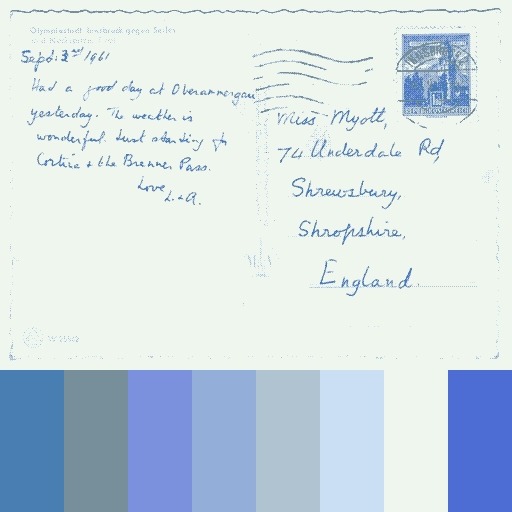 Olympiastadt Innsbruck gegen Süden
Sept. 3rd 1961
Had a good day at Oberammergau
yesterday. The weather is
wonderful. Just starting for
Cortina & the Brenner Pass.
Love
L. & A.
Miss Myott,
74 Underdale Rd,
Shrewsbury,
Shropshire,
England.